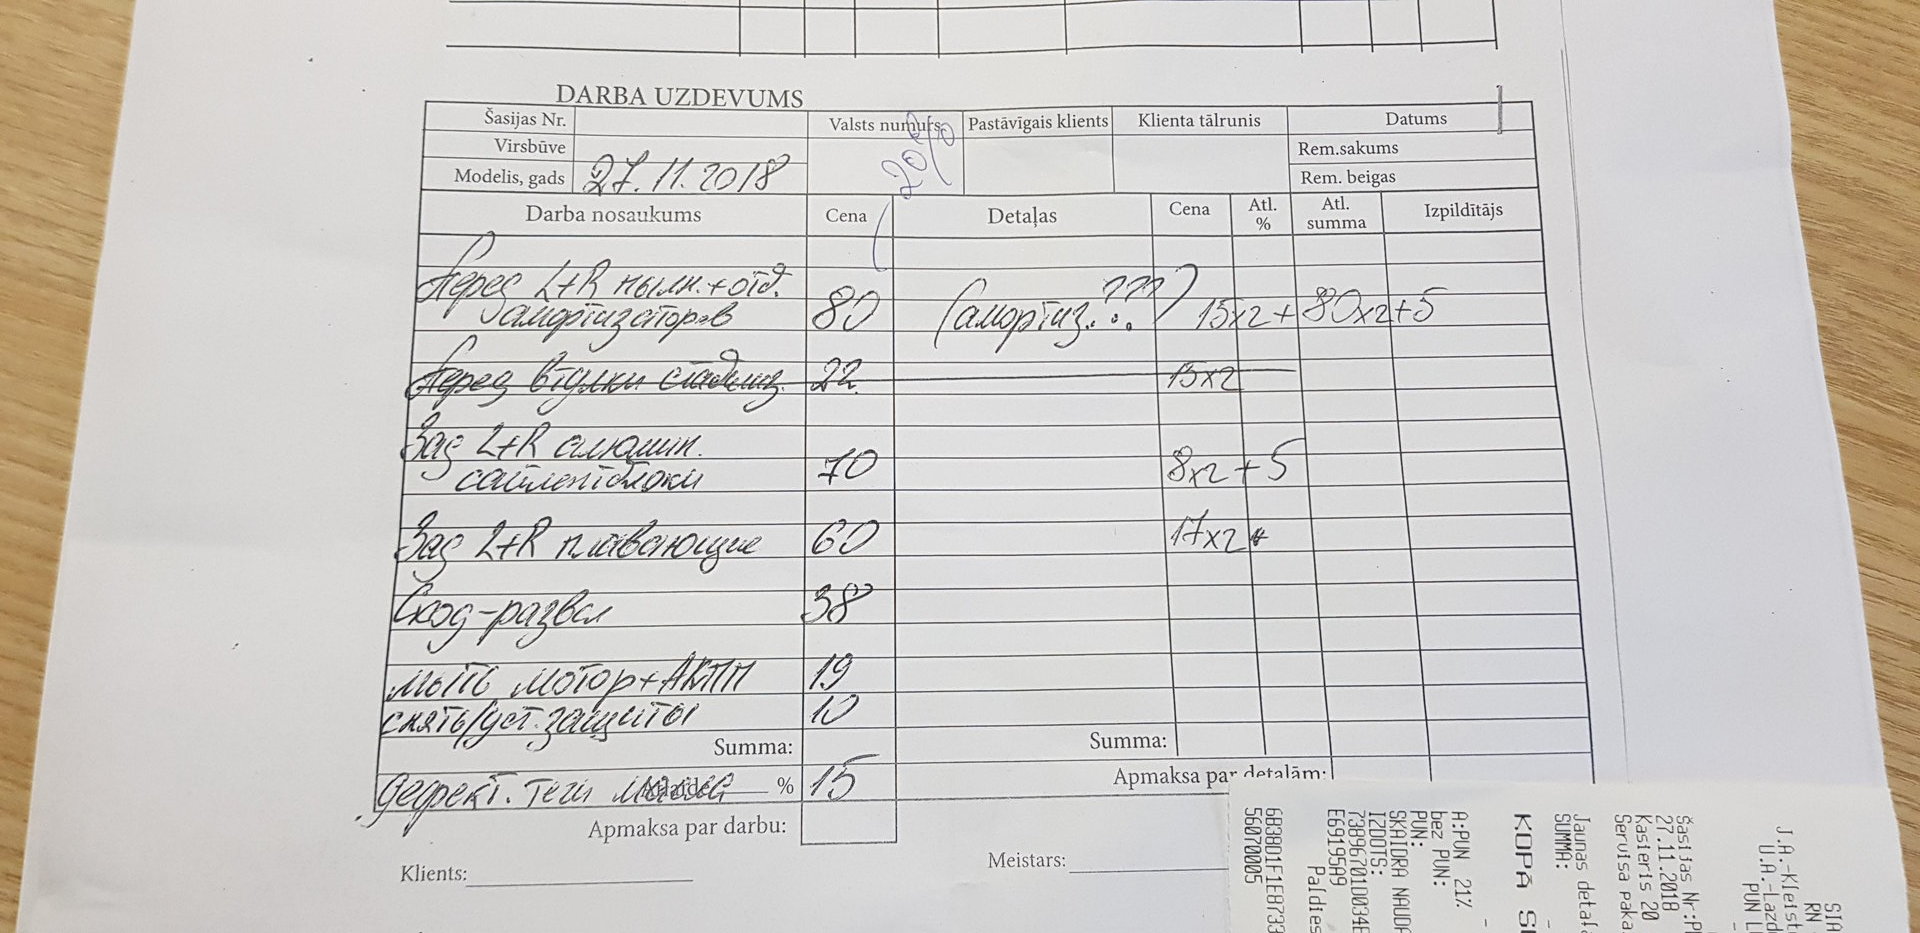 DARBA UZDEVUMS
Šasijas Nr. Valsts numurs Pastāvīgais klients Klienta tālrunis Datums
Virsbūve Rem.sakums
Modelis, gads 27.11.2018 Rem. beigas
Darba nosaukums Cena Detaļas Cena Atl. % Atl. summa Izpildītājs
Перед L+R пыльн.+отб.
амортизаторов 80 (амортиз..? ???) 15x2+ 80x2+5
Перед втулки стабилиз. 22 15x2
Зад L+R алюмин.
сайлентблоки 70 8x2+5
Зад L+R плавающие 60 17x2
Сход-развал 38
мыть мотор+АКПП 19
снять/уст. защиты 10
Summa: Summa:
дефект. течи % 15 Apmaksa par detaļām:
Apmaksa par darbu:
Klients: Meistars:
SIA
RN
J.A.-Kleist
U.A.-Lazd
PUN
Šasijas Nr:
27.11.2018
Kasieris 20
Servisa paka
Jaunas detaļ
SUMMA:
KOPĀ
A:PUN 21%
bez PUN:
PUN:
SKAIDRA NAUDA
IZDOTS:
73B96701D034E
E69195A9
Paldies
6B38D1F1E8733
56070005